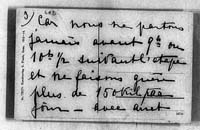 3) Car nous ne partons
jamais avant 9h ou
10h½ suivant l'étape
et ne faisons guère
plus de 150 kil par
jour - avec